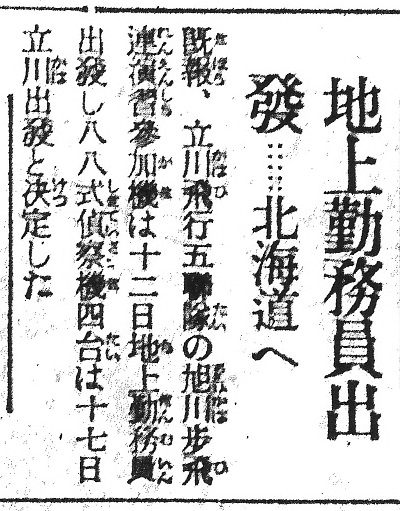 地上勤務員出
發……北海道へ
既報、立川飛行五聯隊の旭川步飛
連演習參加機は十二日地上勤務員
出發し八八式偵察機四台は十七日
立川出發と決定した